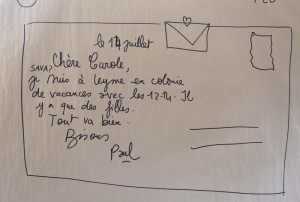 le 14 juillet
SAVA, Chère Carole,
je suis à Leyme en colonie
de vacances avec les 12-14. Il
y a que des filles.
Tout va bien.
Bisous
Paul